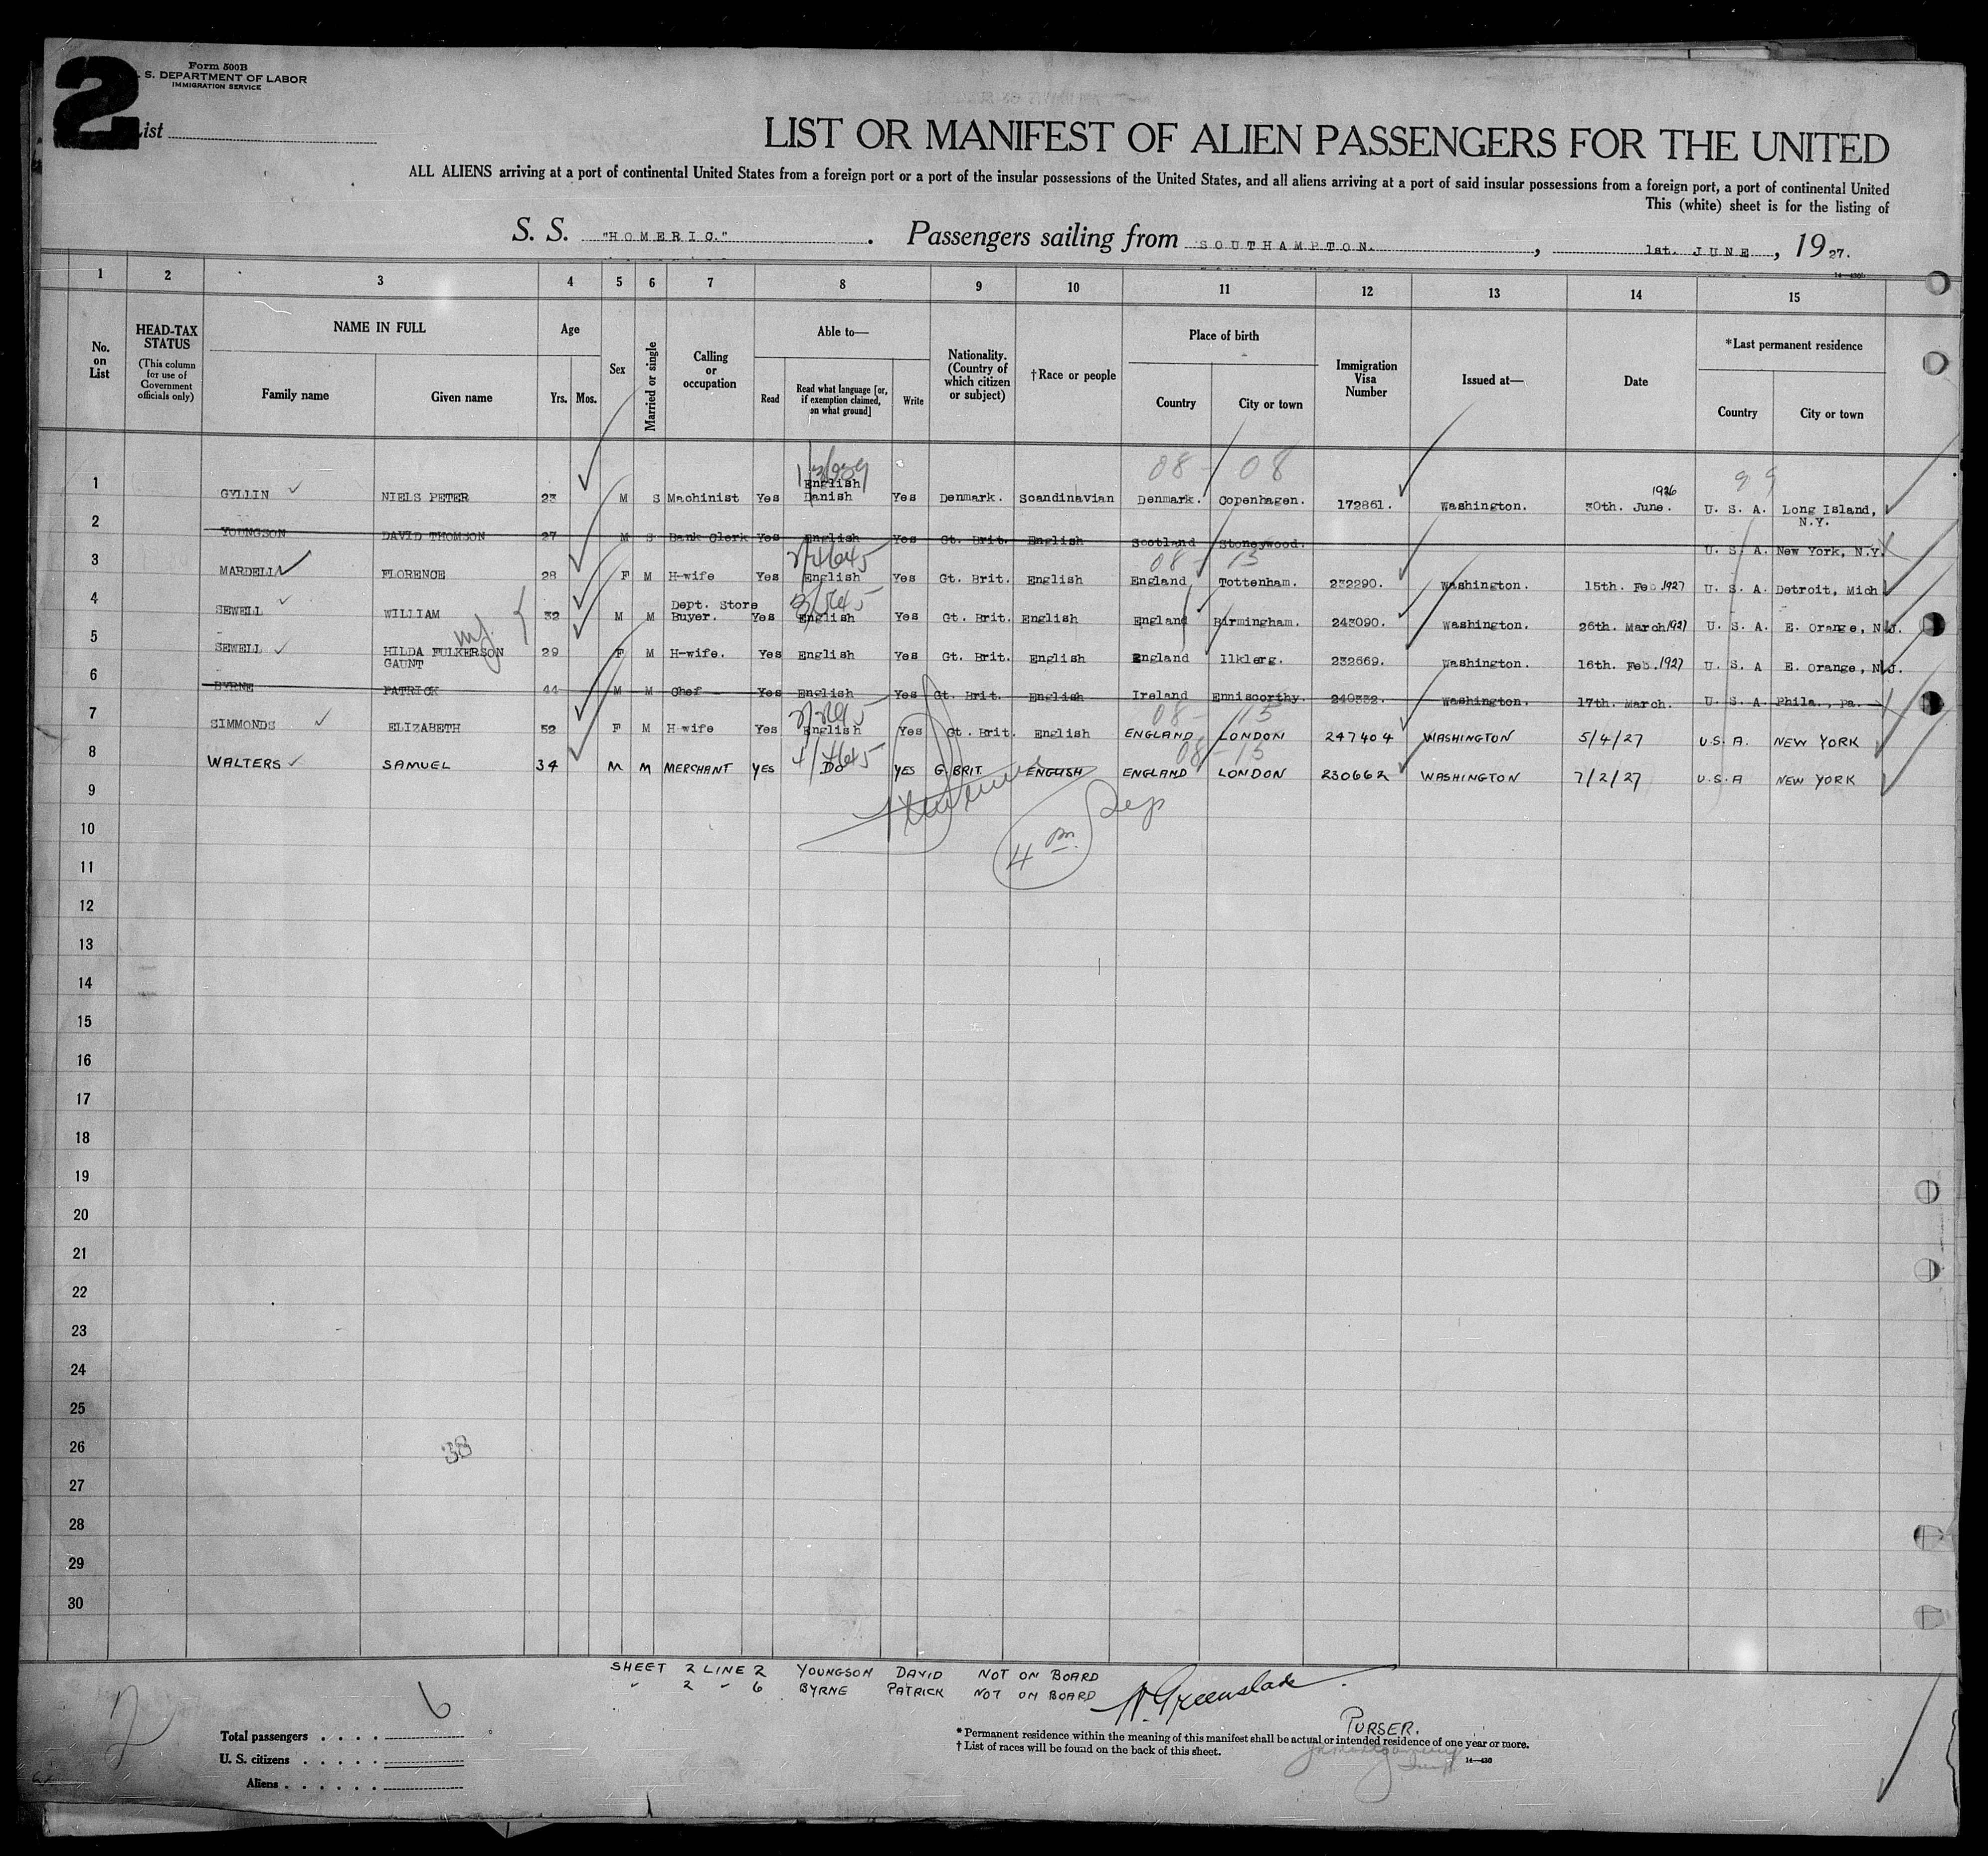 2
Form 500B
S. DEPARTMENT OF LABOR
IMMIGRATION SERVICE
List
LIST OR MANIFEST OF ALIEN PASSENGERS FOR THE UNITED
ALL ALIENS arriving at a port of continental United States from a foreign port or a port of the insular possessions of the United States, and all aliens arriving at a port of said insular possessions from a foreign port, a port of continental United
This (white) sheet is for the listing of
S. S. "HOMERIC." Passengers sailing from SOUTHAMPTON. , 1st. JUNE , 1927.
1 2 3 4 5 6 7 8 9 10 11 12 13 14 15
No. on List
HEAD-TAX STATUS (This column for use of Government officials only)
NAME IN FULL
Family name Given name
Age
Yrs. Mos.
Sex
Married or single
Calling or occupation
Able to—
Read Read what language [or, if exemption claimed, on what ground] Write
Nationality. (Country of which citizen or subject)
†Race or people
Place of birth
Country City or town
Immigration Visa Number
Issued at—
Date
*Last permanent residence
Country City or town
08 - 08 99
1 GYLLIN NIELS PETER 23 M S Machinist Yes English Danish Yes Denmark. Scandinavian Denmark. Copenhagen. 172861. Washington. 30th. June. 1926 U. S. A. Long Island, N.Y.
2 YOUNGSON DAVID THOMSON 27 M S Bank Clerk Yes English Yes Gt. Brit. English Scotland Stoneywood. U. S. A. New York, N.Y.
08 - 15
3 MARDELL FLORENCE 28 F M H-wife Yes English Yes Gt. Brit. English England Tottenham. 232290. Washington. 15th. Feb 1927 U. S. A. Detroit, Mich
4 SEWELL WILLIAM 32 M M Dept. Store Buyer. Yes English Yes Gt. Brit. English England Birmingham. 243090. Washington. 26th. March 1927 U. S. A. E. Orange, N.J.
5 SEWELL HILDA FULKERSON GAUNT 29 F M H-wife. Yes English Yes Gt. Brit. English England Ilklerg. 232669. Washington. 16th. Feb. 1927 U. S. A E. Orange, N.J.
6 BYRNE PATRICK 44 M M Chef Yes English Yes Gt. Brit. English Ireland Enniscorthy. 240332. Washington. 17th. March. U. S. A Phila., Pa.
08 - 15
7 SIMMONDS ELIZABETH 52 F M H-wife Yes English Yes Gt. Brit. English ENGLAND LONDON 247404 WASHINGTON 5/4/27 U.S.A. NEW YORK
08 - 15
8 WALTERS SAMUEL 34 M M MERCHANT YES DO YES G. BRIT. ENGLISH ENGLAND LONDON 230662 WASHINGTON 7/2/27 U.S.A NEW YORK
9
10
11
12
13
14
15
16
17
18
19
20
21
22
23
24
25
26
38
27
28
29
30
SHEET 2 LINE 2 YOUNGSON DAVID NOT ON BOARD
" 2 - 6 BYRNE PATRICK NOT ON BOARD
PURSER.
2
Total passengers . . . . 6
U. S. citizens . . . . .
Aliens . . . . . .
* Permanent residence within the meaning of this manifest shall be actual or intended residence of one year or more.
† List of races will be found on the back of this sheet.
14—430